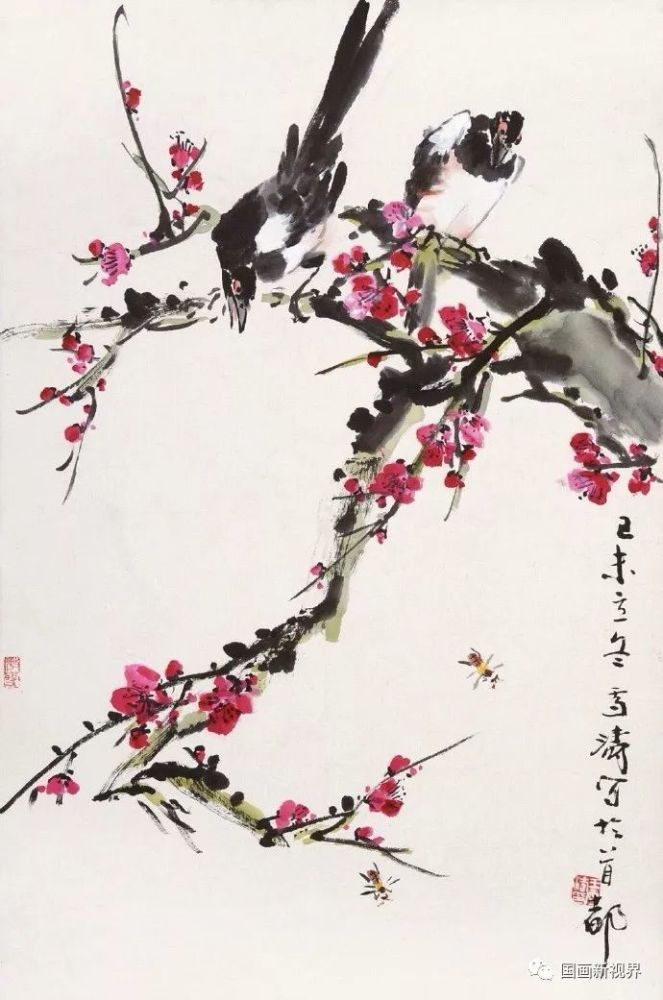 己未立冬雪涛写于首都
国画新视界